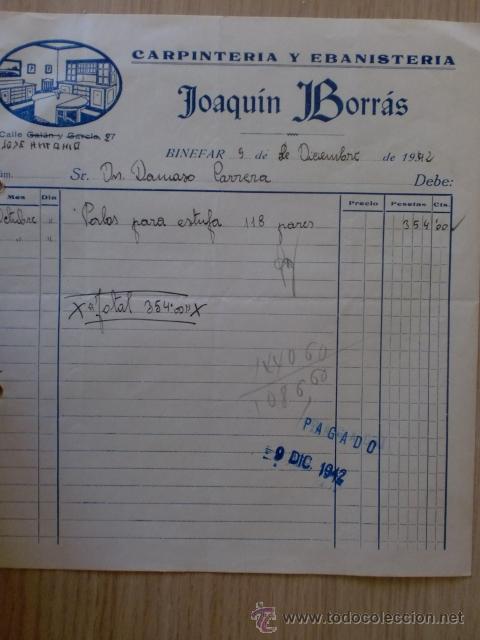 CARPINTERIA Y EBANISTERIA
Joaquín Borrás
Calle Galán y García, 27
JOSE ANTONIO
BINEFAR 9 de de Diciembre de 1942
Sr. Dn. Damaso Carrera Debe:
Mes Dia Precio Pesetas Cts.
Octubre " Palos para estufa 118 pares 354 00
X " Total 354'00 " X
1086,60
PAGADO
9 DIC. 1942
todocoleccion
www.todocoleccion.net